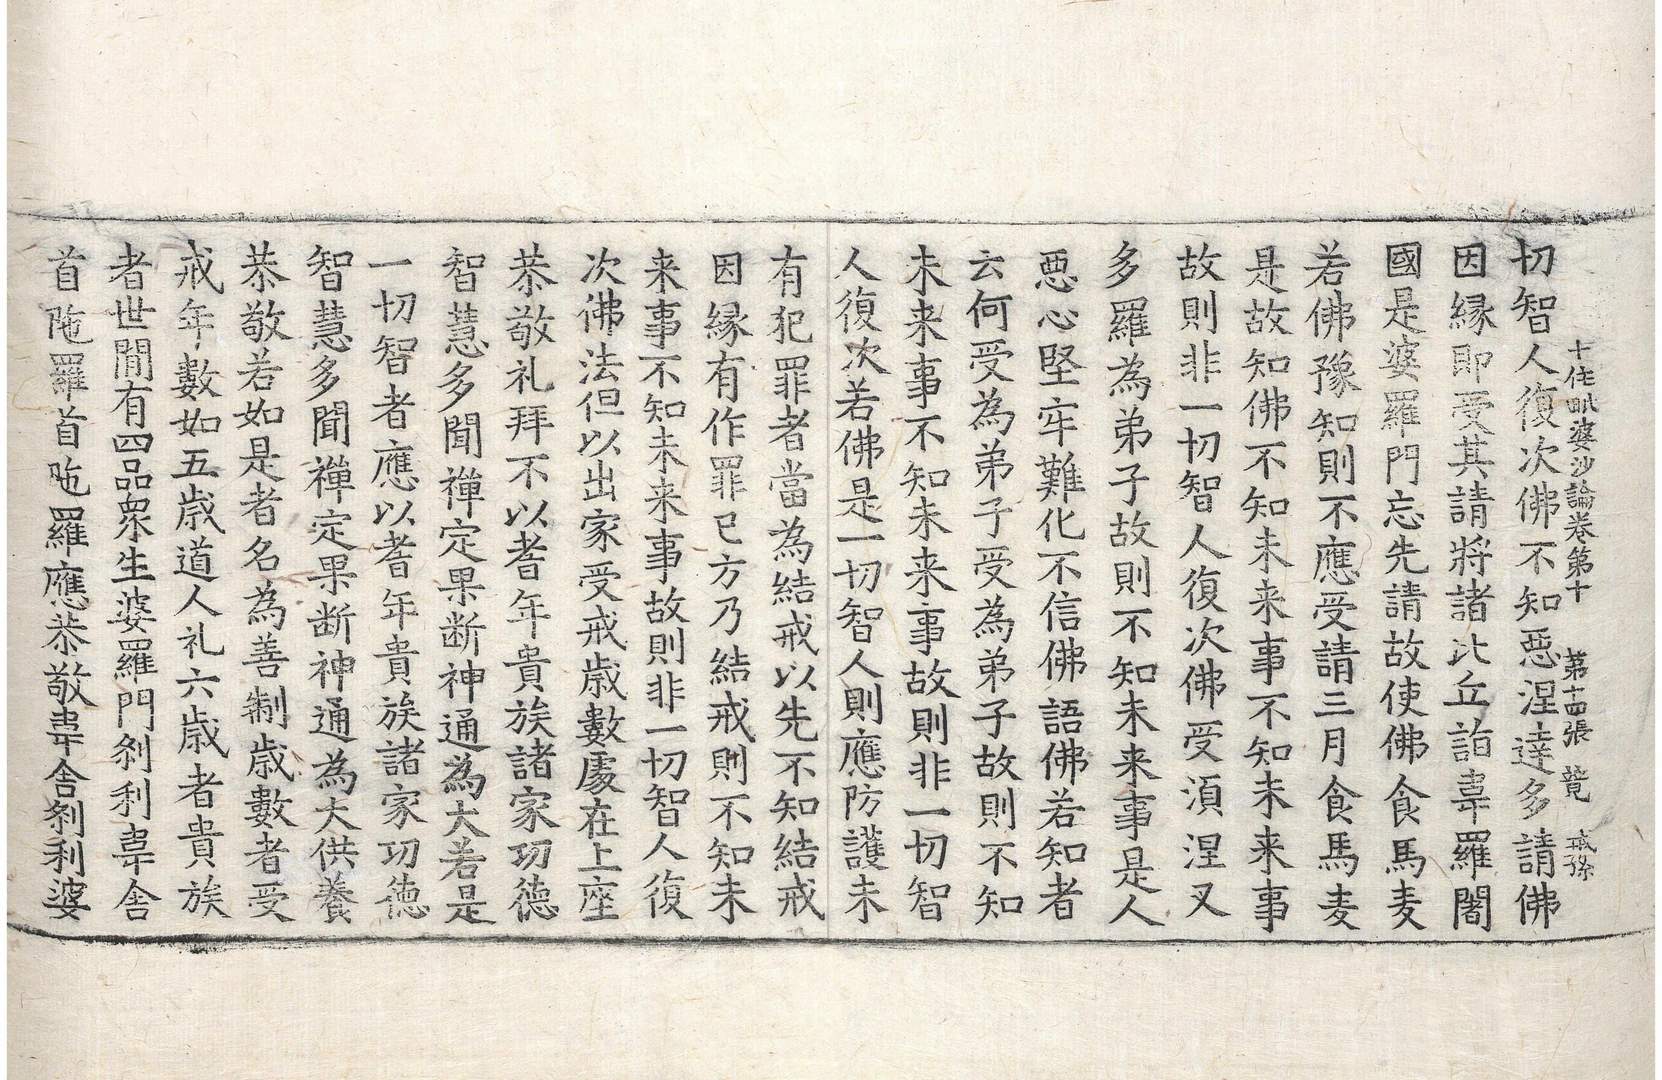 十住毗婆沙論卷第十　第十四張　㲉　戒孫
切智人復次佛不知惡涅達多請佛
因縁即受其請將諸比丘詣韋羅闍
國是婆羅門忘先請故使佛食馬麦
若佛豫知則不應受請三月食馬麦
是故知佛不知未来事不知未来事
故則非一切智人復次佛受湏涅叉
多羅為弟子故則不知未来事是人
惡心堅牢難化不信佛語佛若知者
云何受為弟子受為弟子故則不知
未来事不知未来事故則非一切智
人復次若佛是一切智人則應防護未
有犯罪者當為結戒以先不知結戒
因縁有作罪已方乃結戒則不知未
来事不知未来事故則非一切智人復
次佛法但以出家受戒歳數處在上座
恭敬礼拜不以耆年貴族諸家功德
智慧多聞禪定果断神通為大若是
一切智者應以耆年貴族諸家功德
智慧多聞禪定果断神通為大供養
恭敬若如是者名為善制歳數者受
戒年數如五歳道人礼六歳者貴族
者世間有四品眾生婆羅門刹利韋舎
首陁羅首陁羅應恭敬韋舎刹利婆